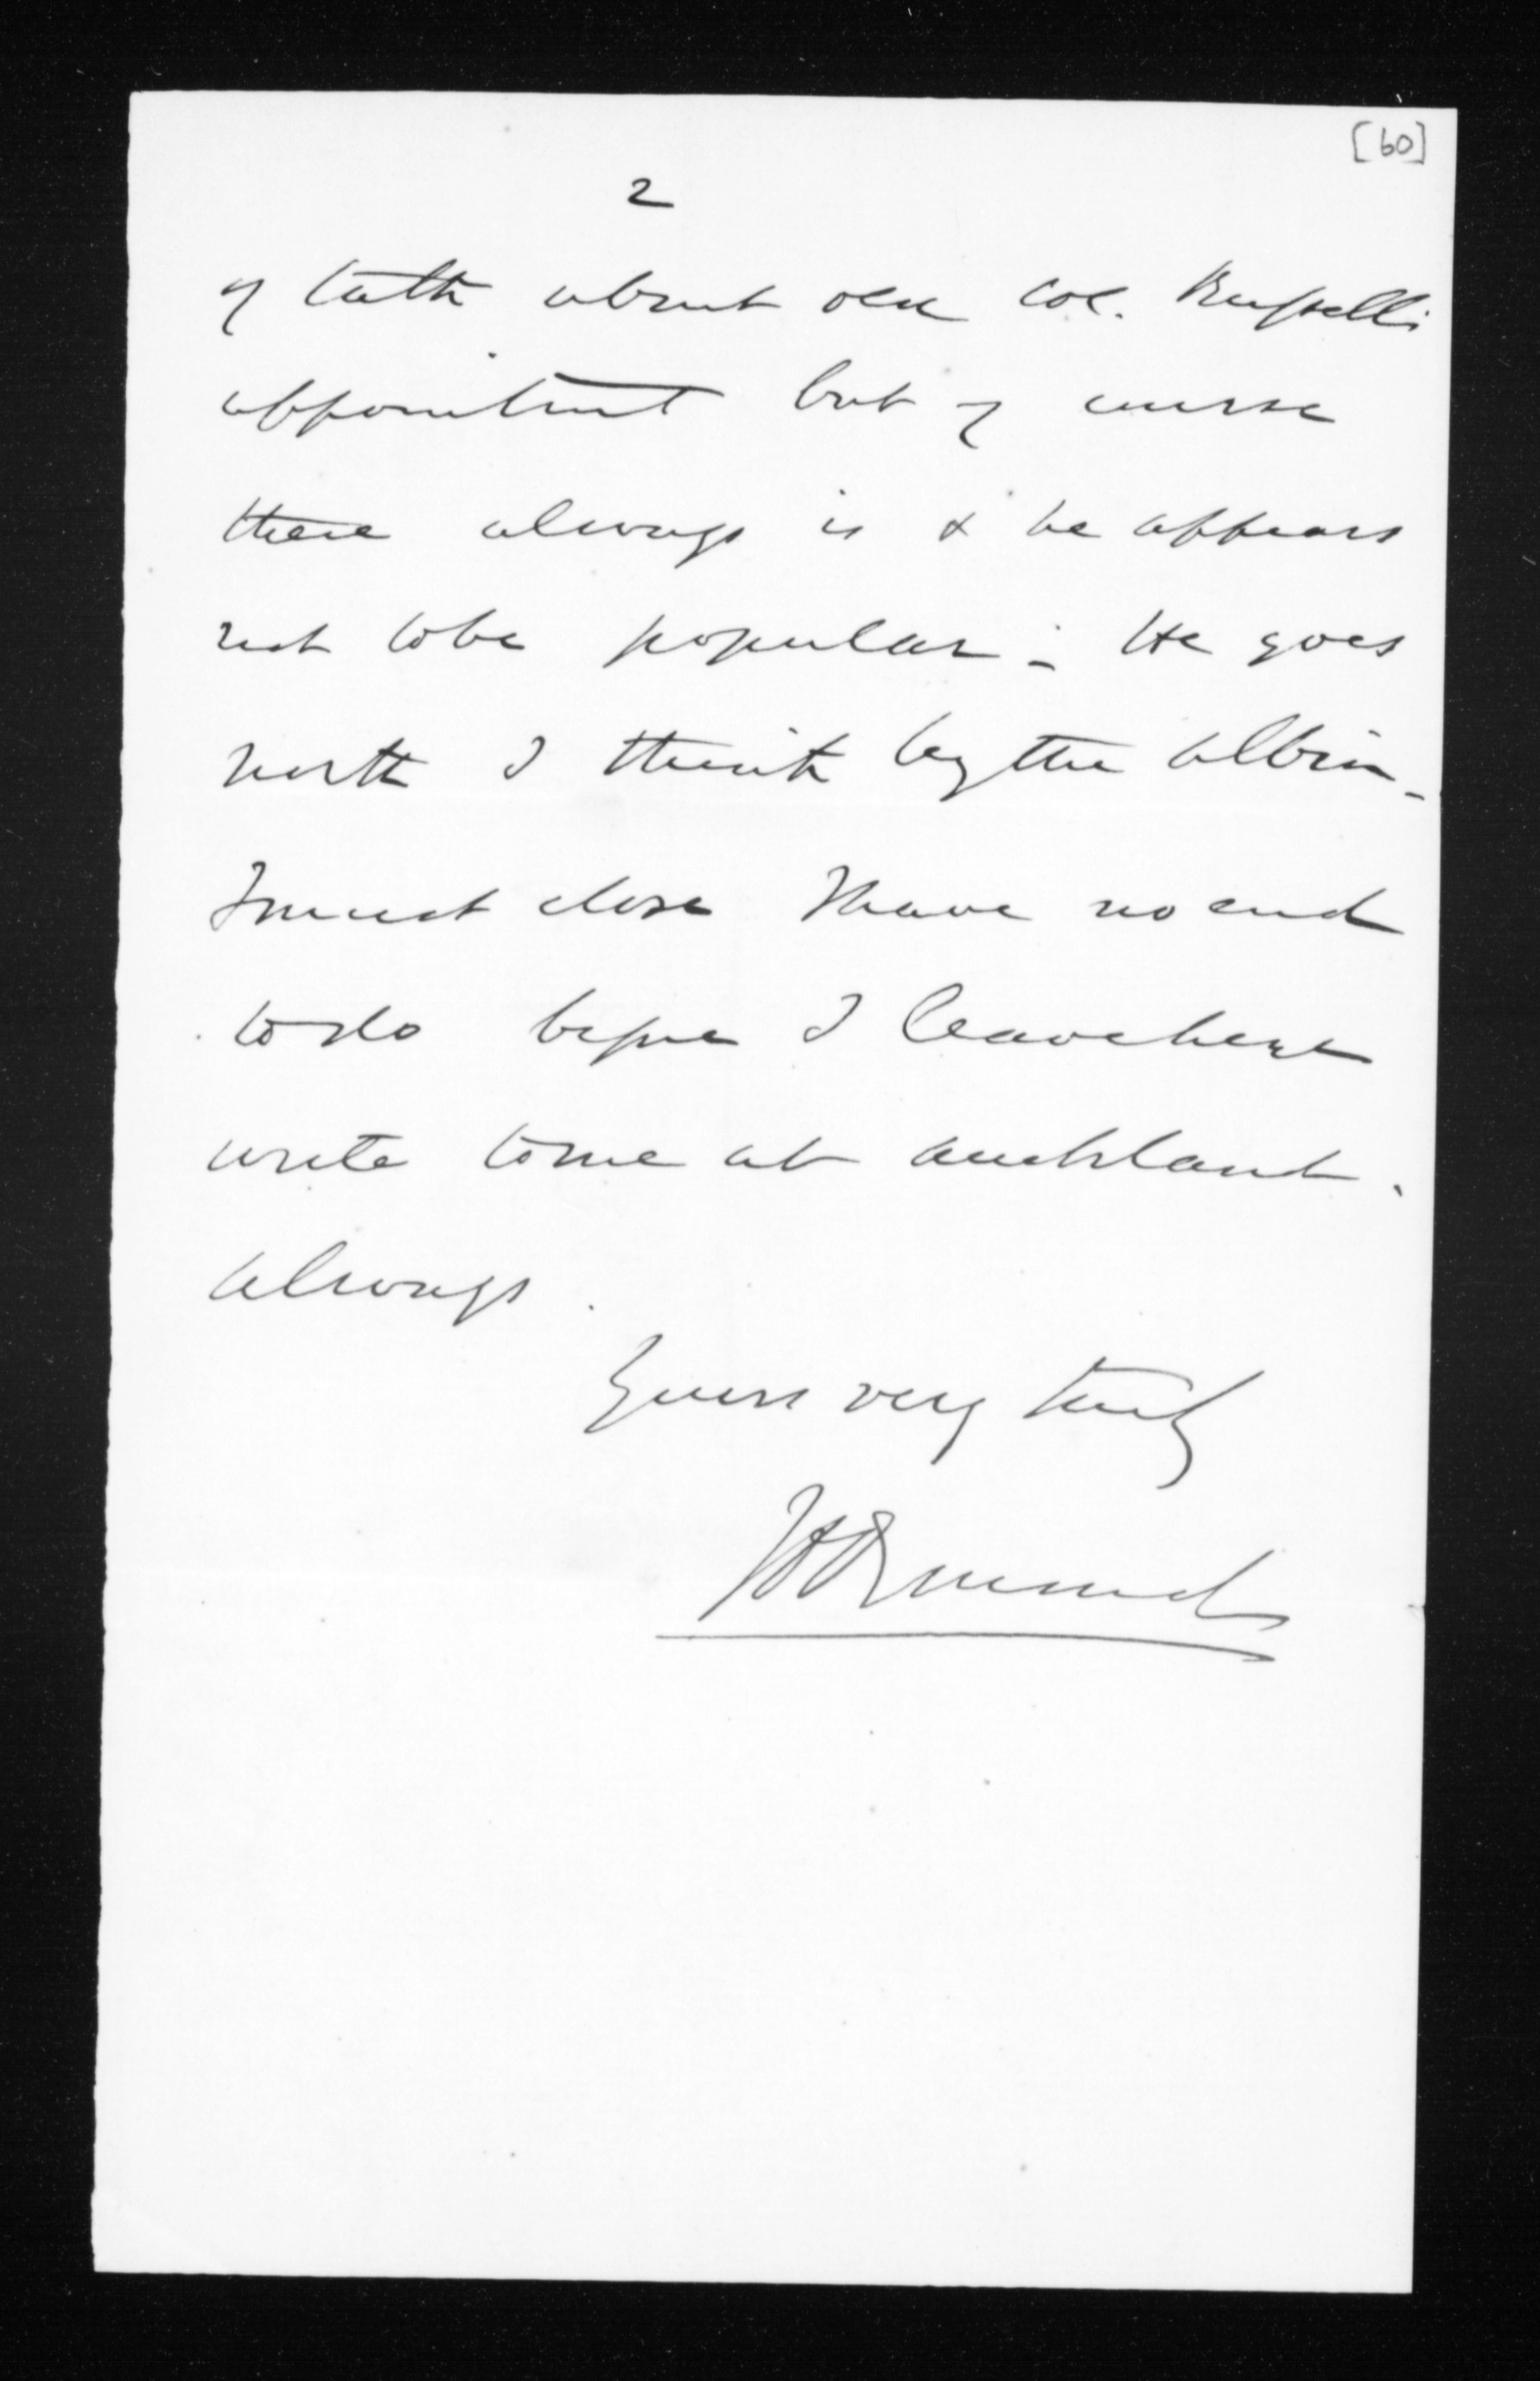 [60]
2
of talk about old Col. Russell's
appointment but of course
there always is & he appears
not to be popular - He goes
north I think by the Albion -
I must close I have no end
to do before I leave here
write to me at Auckland.
always.
Yours very truly
JD Ormond